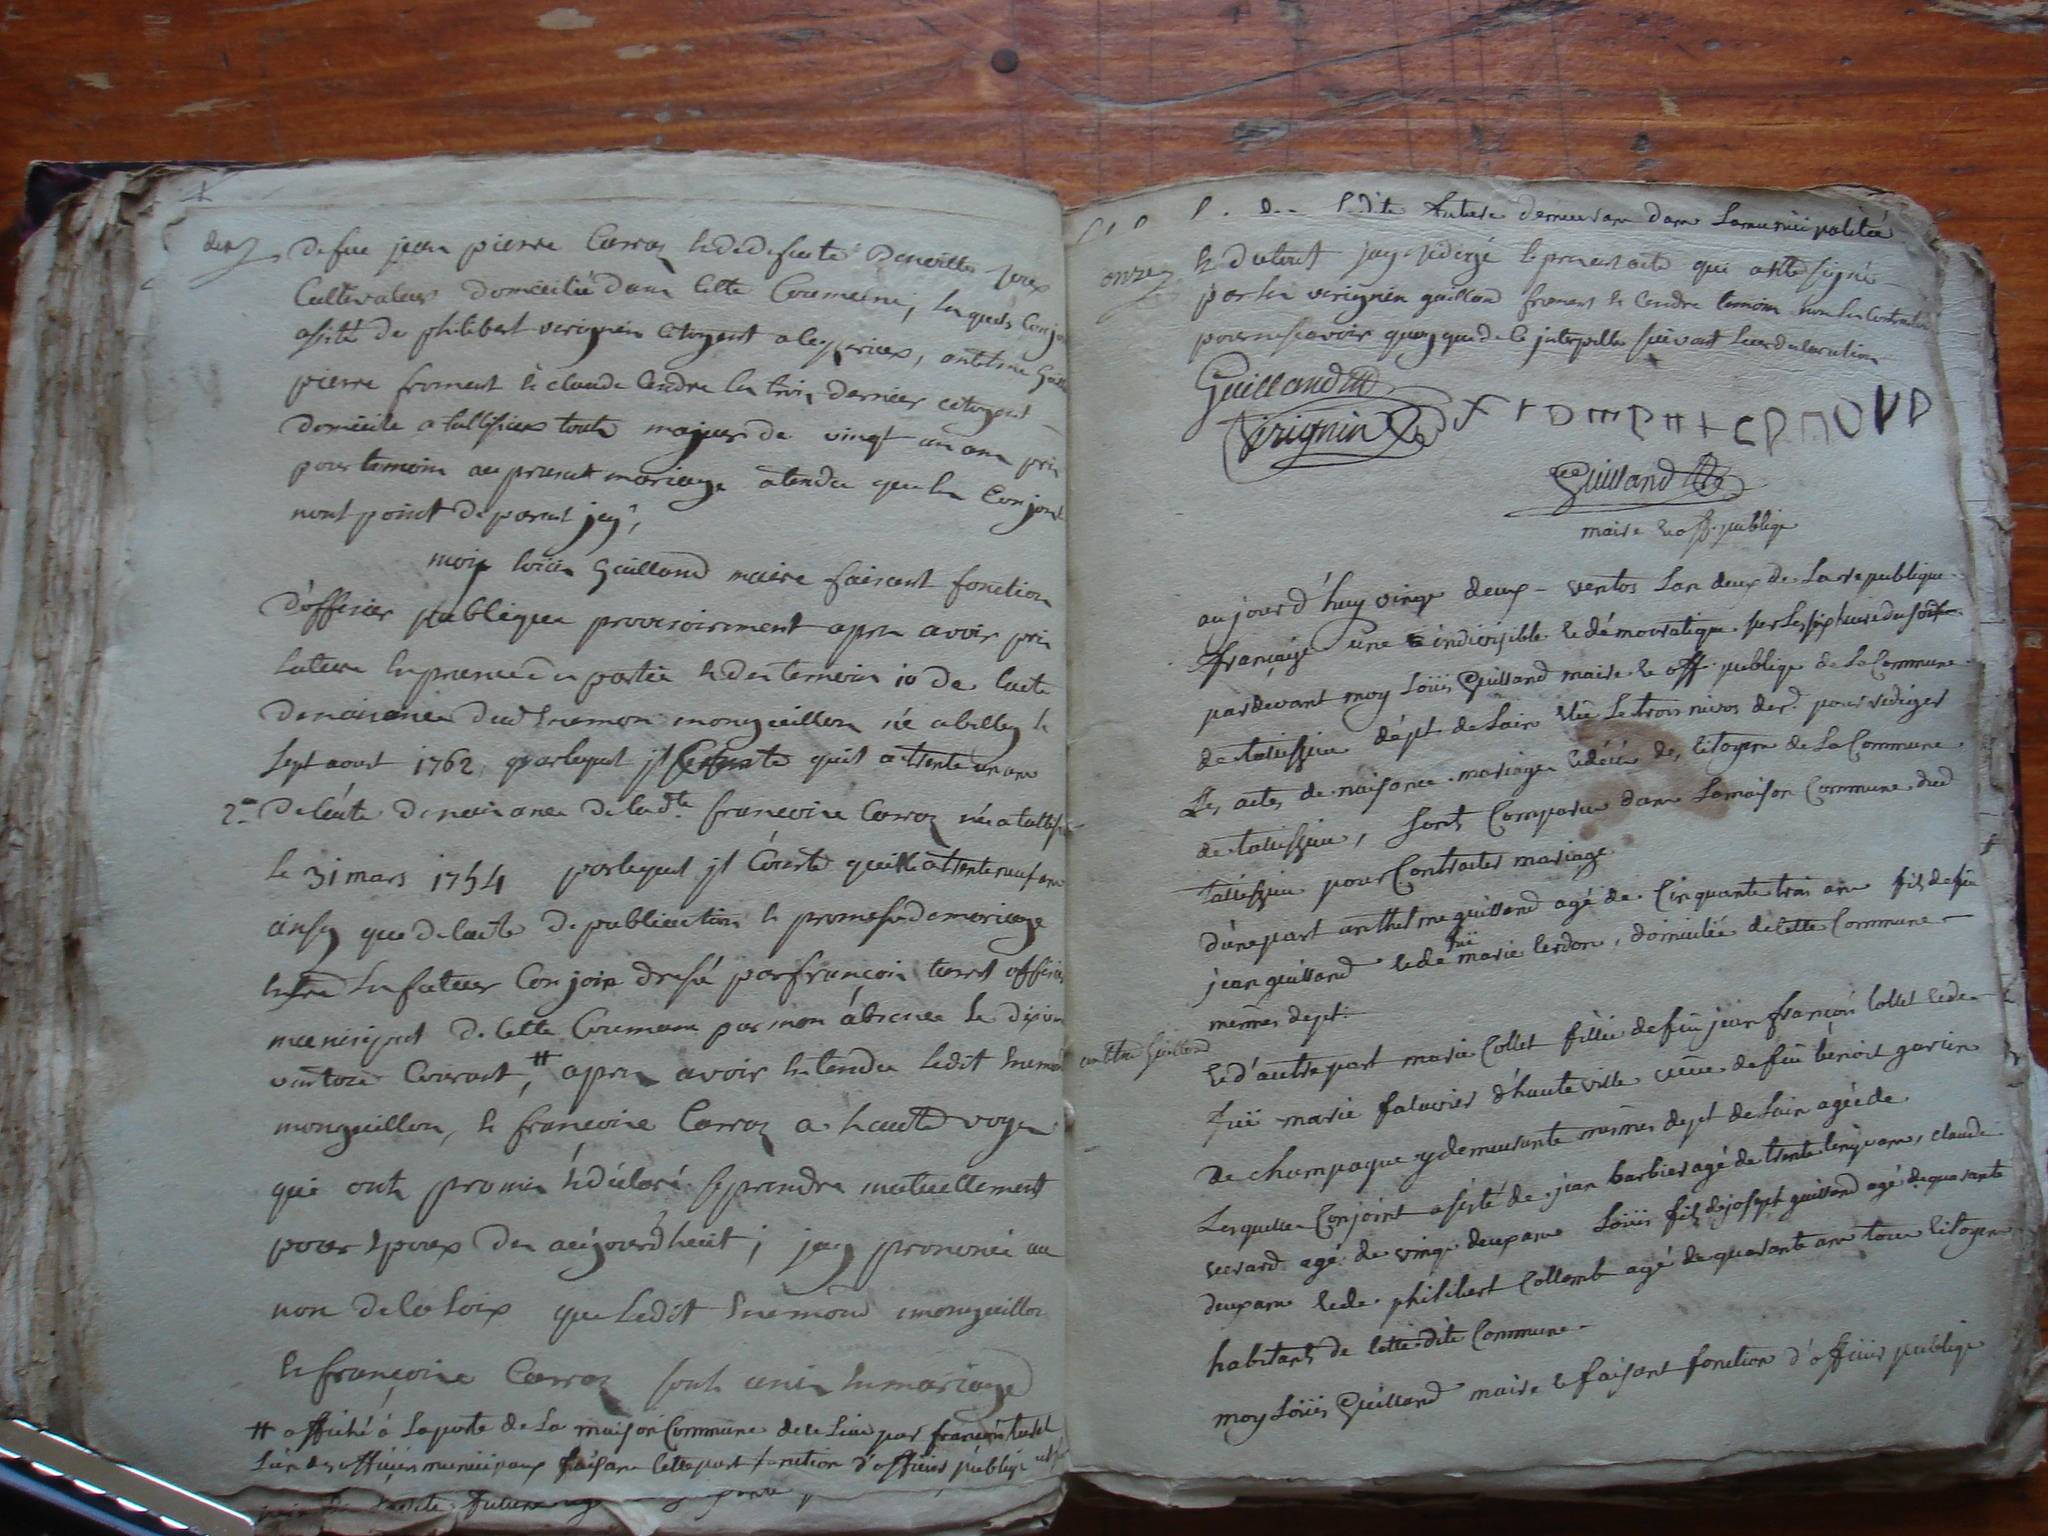 dix
de feu jean pierre Carroz et de defunte
Cultivateur domicilié dans cette Commune, lesquels Conjoi
assisté de philibert verignin citoyent a leysieux, anthelme Guill
pierre froment et claude Cendre les trois dernier citoyent
domicile a tallissieux touts majeur de vingt un ans pris
pour temoin au present mariage atendu que les Conjoint
nont point de parent jey,
moix loüis Guilland maire faisent fonction
d'officier publique provisoirement apres avoir pris
lecture en presence des partie et des temoin 1o de lacte
denaisance dud Enemon monguillon né a billey le
sept aoust 1762, par lequel jl Conste quil a trente un ans
2° De lacte de naisance de lad.te francoise Carroz née a tallissi
le 31 mars 1754 par lequel jl Conste quille a trente neuf ans
ainsy que de lacte de publication de promesse de mariage
entre les futeur Conjoin dressé par françois turrel officier
municipal de cette Commune par mon absence le dix
ventose Courant, # apres avoir entendu ledit Enemond
monguillon, et francoise Carroz a haute voye
qui onts promis et déclaré se prendre mutuellement
pour Epoux des aujourd'heuit, j jey prononcé au
non de la Loix que Ledit Enemond monguillon
et françoise Carroz sonts unis en mariage
# affiché á La porte de La maison Commune de ce Lieu par françois turrel
L'un des officiers municipaux faisant cette part fonction d'officier publiqe
future
dite future demeurant dans La municipalitée
onze
et du tout jay redigé le present acte qui a été signé
par les verignin guilland froment et Cendre temoin non les Contractans
pour ne scavoir quoy que de ce jnterpelles suivant leur declaration
Guilland
Virignin
Guilland
maire et off. publiqe
aujourd'huy vingt deux ventos Lan deux de La republique
française une & indivisible et démocratique sur Les six heure du soir
pardevant moy Loüis Guilland maire et off. publiqe de La Commune
de talissieu dépt de Lain élu Le trois nivos der. pour rediger
Les actes de naisance mariage et décé des citoyens de La Commune
de talissieu, sonts Comparu dans La maison Commune dud
talissieu pour Contracter mariage
d'une part anthelme guilland agé de Cinquante trois ans fils de feu
jean guilland et de füe marie Cerdon, domicilié de cette Commune
mesmes dept.
anthe Guilland
et d'autre part marie Collet fillie de feu jean françois Collet et de
füe marie d'hauteville veüve de feu benoit garin
de champagne y demeurante mesmes dept de Lain agée de
Lesquelles Conjoint assisté de jean barbier agé de trente cinq ans, claude
agé de vingt deux ans Loüis fils de joseph guilland agé de quarante
deux ans et de philibert Collomb agé de quarante ans tous citoyen
habitants de cette dite Commune
moy Loüis Guilland maire et faisant fonction d'officier publiqe